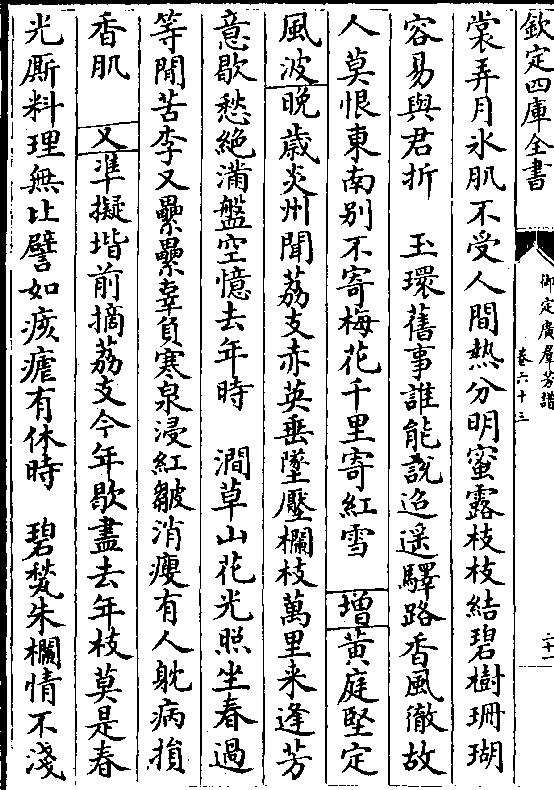 欽定四庫全書
御定廣羣芳譜
卷六十三
二十一
裳弄月氷肌不受人間熱分明蜜露枝枝結碧樹珊瑚
容易與君折　玉環舊事誰能說迢遥驛路香風徹故
人莫恨東南别不寄梅花千里寄紅雪　增黄庭堅定
風波晚歳炎州聞荔支赤英垂墜壓欄枝萬里来逢芳
意歇愁絶滿盤空憶去年時　澗草山花光照坐春過
等閒苦李又纍纍辜負寒泉浸紅皺消瘦有人躭病損
香肌　又凖擬堦前摘荔支今年歇盡去年枝莫是春
光厮料理無比譬如痎瘧有休時　碧甃朱欄情不淺